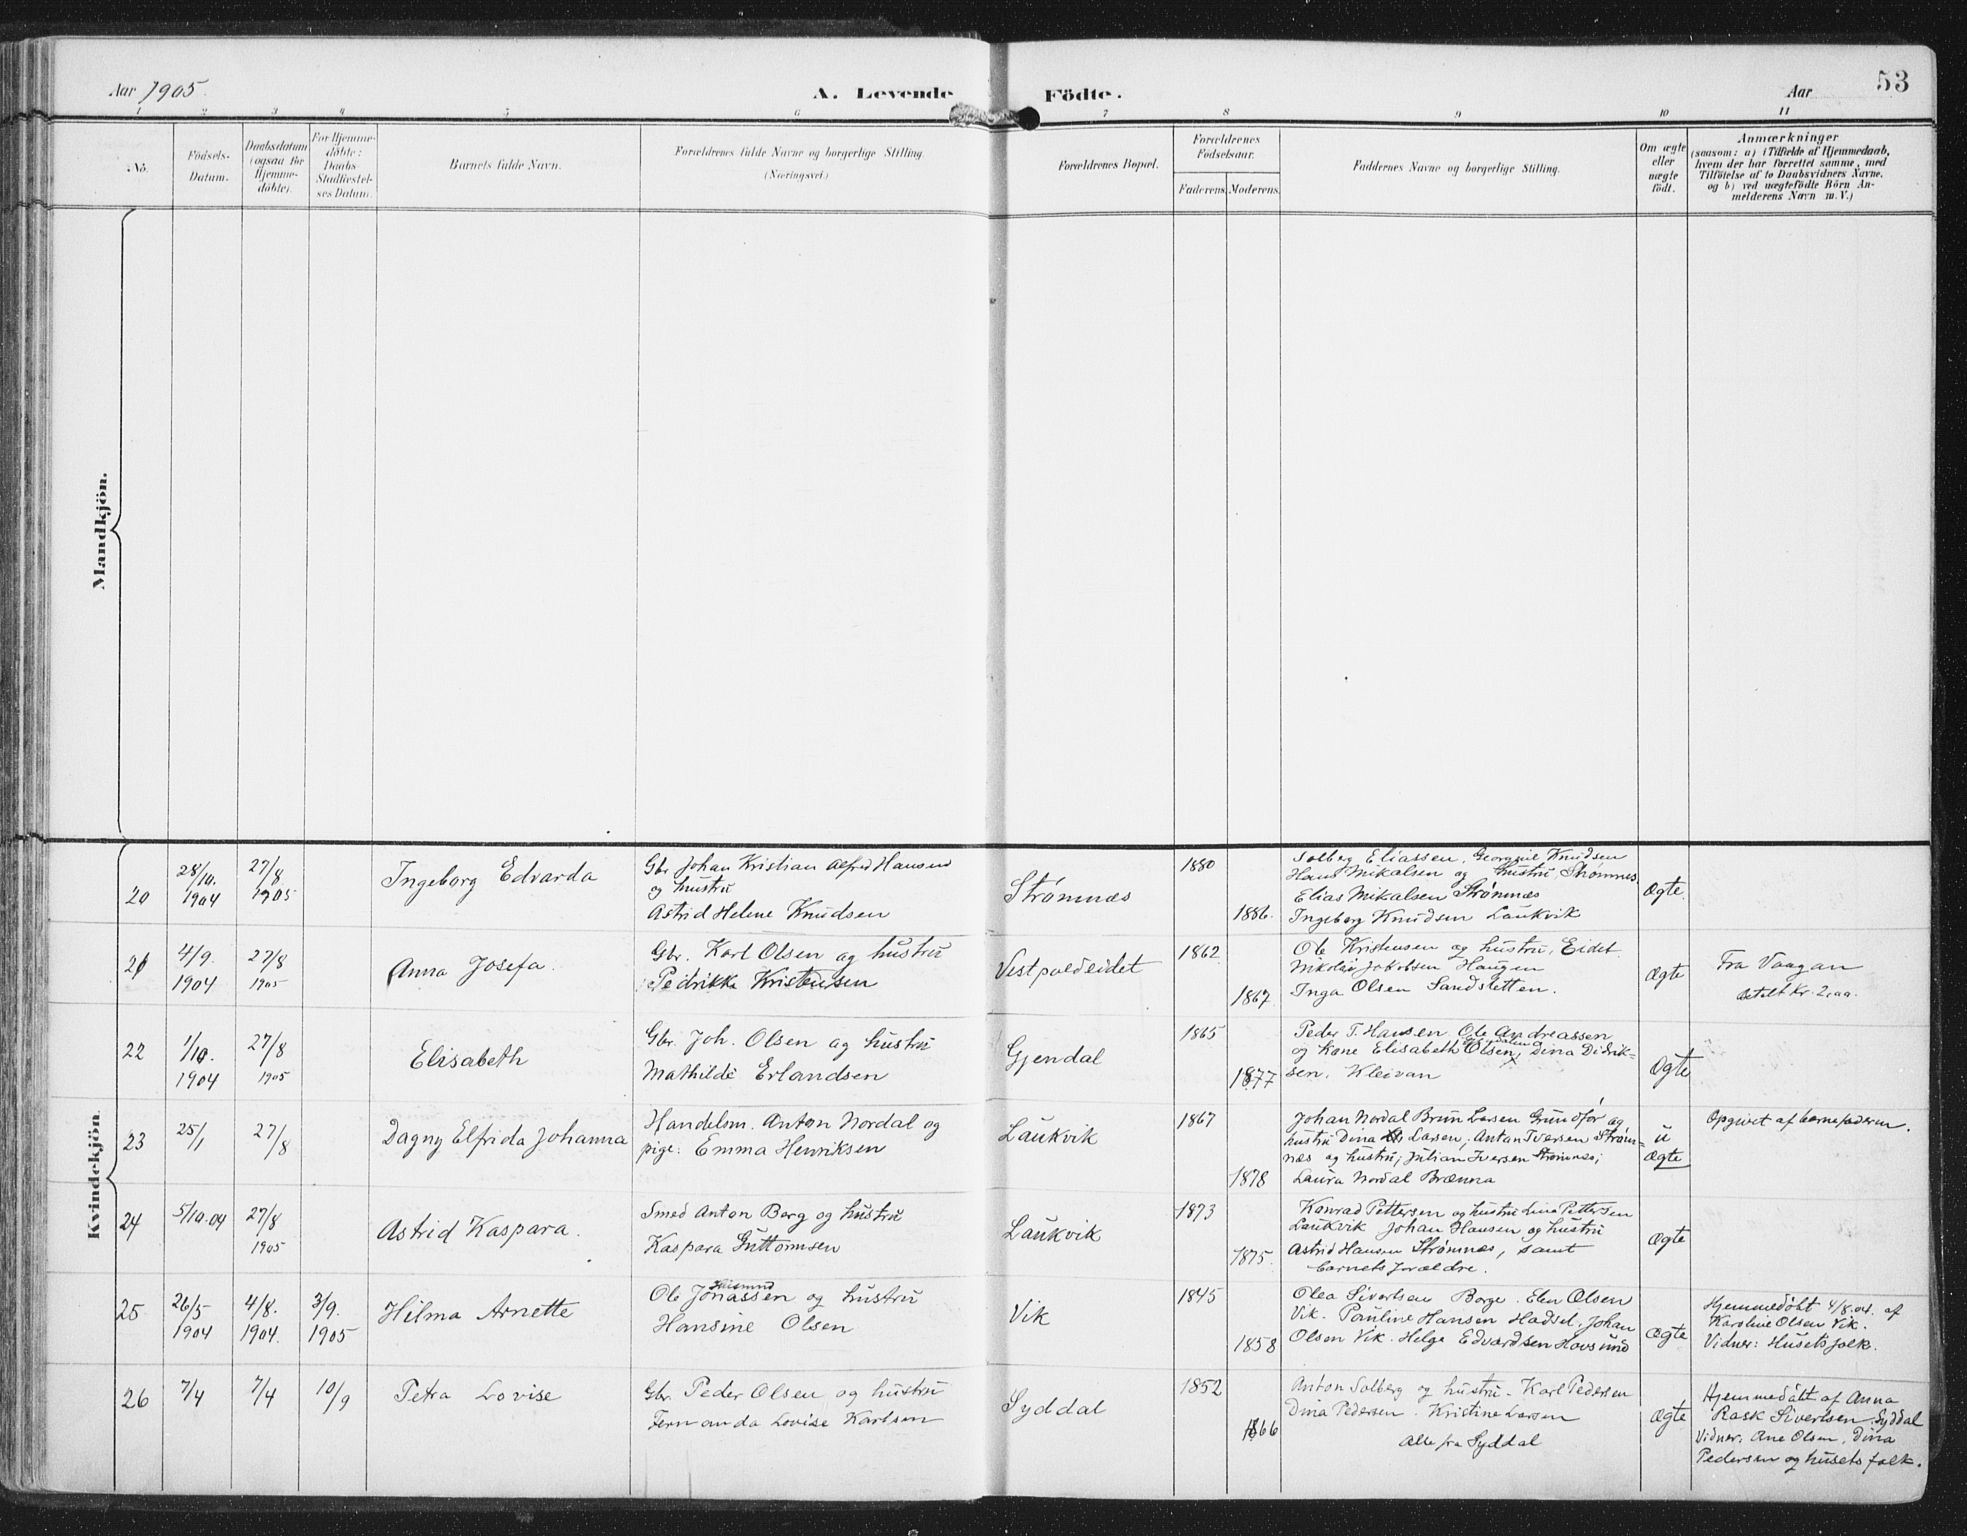 Aar 1905.
A. Levende
Födte.
Aar
53
1 2 3 4 5 6 7 8 9 10 11
No.
Födsels-
Datum.
Daabsdatum
(ogsaa for
Hjemme-
döbte).
For Hjemme-
döbte:
Daabs-
Stadfæstel-
ses Datum.
Barnets fulde Navn.
Forældrenes fulde Navne og borgerlige Stilling
(Næringsvei.)
Forældrenes Bopæl.
Forældrenes
Födselsaar.
Faderens. Moderens.
Faddernes Navne og borgerlige Stilling.
Om ægte
eller
uægte
födt.
Anmærkninger
(saasom: a) i Tilfælde af Hjemmedaab,
hvem der har forrettet samme, med
Tilföielse af to Daabsvidners Navne,
og b) ved uægtefödte Börn An-
melderens Navn m. V.)
Mandkjön.
Kvindekjön.
20
28/10.
1904
27/8
1905
Ingeborg Edvarda
Gbr Johan Kristian Alfred Hansen
og hustru
Astrid Helene Knudsen
Strømnæs
1880
1886.
Solberg Eliassen, Knudsen
Hans Mikalsen og hustru, Strømnes.
Elias Mikalsen Strømnæs
Ingeborg Knudsen Laukvik
Ægte.
21
4/9.
1904
27/8
1905
Anna Josefa.
Gbr. Karl Olsen og hustru
Pedrikke Kristensen
Vestpoldeidet
1862
1867
Ole Kristensen og hustru, Eidet.
Nikolai Jakobsen Haugen
Inga Olsen Sandsletten.
Ægte
Fra Vaagan
betalt Kr. 2,00.
22
1/10.
1904
27/8
1905
Elisabeth
Gbr. Joh. Olsen og hustru
Mathilde Erlandsen
Gjendal
1865
1877
Peder T. Hansen, Ole Andreassen
og Kone Elisabeth Olsen, Dina Didrik-
sen. Kleivan
Ægte
23
25/1
27/8
Dagny Elfrida Johanna
Handelsm. Anton Nordal og
pige: Emma Henriksen
Laukvik
1867
1878
Johan Nordal Brun Larsen Grundfør og
hustru Dina Larsen; Anton Iversen Strøm-
næs og hustru; Julian Iversen Strømnes;
Laura Nordal Brænna
u
ægte
Opgivet af barnefaderen.
24
5/10.04
27/8
1905
Astrid Kaspara.
Smed Anton Berg og hustru
Kaspara Guttormsen
Laukvik
1873
1875.
Konrad Pettersen og hustru Lina Pettersen
Laukvik Johan Hansen og hustru
Astrid Hansen Strømnæs, samt
barnets forældre.
Ægte
25
26/5
1904
4/8.
1904.
3/9.
1905
Hilma Arnette
Husmand
Ole Jonassen og hustru
Hansine Olsen
Vik
1845
1858
Olea Sivertsen Borge. Elen Olsen
Vik. Pauline Hansen Hadsel. Johan
Olsen Vik. Helge Edvardsen Hovsund
Ægte
Hjemmedøbt 4/8.04. af
Karoline Olsen Vik.
Vidner: Husets folk.
26
7/4
7/4
10/9
Petra Lovise
Gbr. Peder Olsen og hustru
Fernanda Lovise Karlsen
Syddal
1852
1866
Anton Solberg og hustru. Karl Pedersen
Dina Pedersen. Kristine Larsen
Alle fra Syddal
Ægte
Hjemmedøbt af Anna
Rask Sivertsen Syddal
Vidner: Ane Olsen, Dina
Pedersen og husets folk.